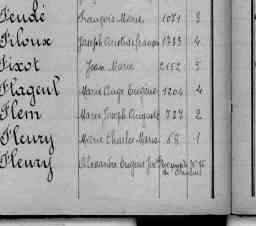 Feudé François Marie 1071 3
Filoux Joseph 1783 4
Fixot Jean Marie 2152 5
Flageul Marie Ange Eugène 1204 4
Flem Marie Joseph Auguste 727 2
Fleury Marie Charles Marie 68 1
Fleury Alexandre Eugène